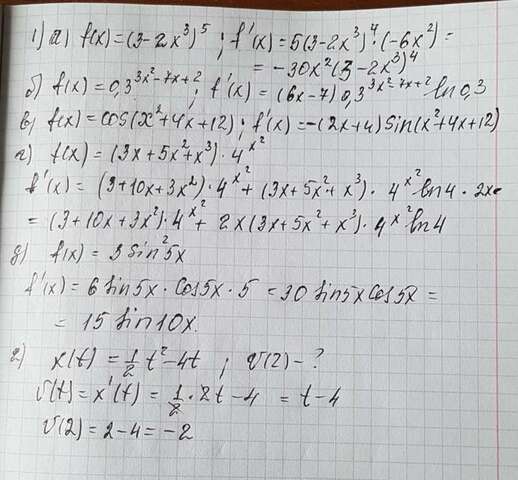 1) а) f(x) = (3-2x³)⁵ ; f'(x) = 5(3-2x³)⁴·(-6x²) =
= -30x²(3-2x³)⁴
б) f(x) = 0,3^(3x²-7x+2) ; f'(x) = (6x-7) 0,3^(3x²-7x+2) ln 0,3
в) f(x) = cos(x²+4x+12) ; f'(x) = -(2x+4) sin(x²+4x+12)
г) f(x) = (3x+5x²+x³)·4^(x²)
f'(x) = (3+10x+3x²)·4^(x²) + (3x+5x²+x³)·4^(x²) ln4·2x=
= (3+10x+3x²)·4^(x²) + 2x(3x+5x²+x³)·4^(x²) ln4
д) f(x) = 3 sin²5x
f'(x) = 6 sin5x · cos5x · 5 = 30 sin5x cos5x =
= 15 sin10x.
е) x(t) = 1/2 t² - 4t ; v(2) - ?
v(t) = x'(t) = 1/2 · 2t - 4 = t - 4
v(2) = 2-4 = -2